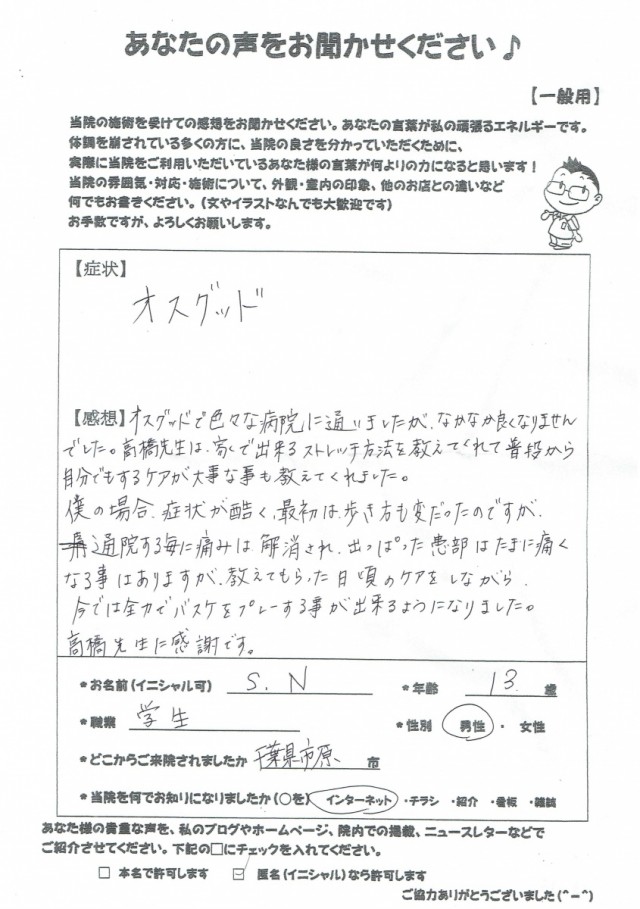 あなたの声をお聞かせください♪
【一般用】
当院の施術を受けての感想をお聞かせください。あなたの言葉が私の頑張るエネルギーです。
体調を崩されている多くの方に、当院の良さを分かっていただくために、
実際に当院をご利用いただいているあなた様の言葉が何よりの力になると思います!
当院の雰囲気・対応・施術について、外観・室内の印象、他のお店との違いなど
何でもお書きください。(文やイラストなんでも大歓迎です)
お手数ですが、よろしくお願いします。
【症状】
オスグッド
【感想】オスグッドで色々な病院に通いましたが、なかなか良くなりません
でした。高橋先生は、家で出来るストレッチ方法を教えてくれて普段から
自分でもするケアが大事な事も教えてくれました。
僕の場合、症状が酷く、最初は歩き方も変だったのですが、
通院する毎に痛みは解消され、出っぱった患部はたまに痛く
なる事はありますが、教えてもらった日頃のケアをしながら、
今では全力でバスケをプレーする事が出来るようになりました。
高橋先生に感謝です。
*お名前(イニシャル可) S.N *年齢 13 歳
*職業 学生 *性別 男性 ・ 女性
*どこからご来院されましたか 千葉県市原 市
*当院を何でお知りになりましたか(○を) インターネット ・チラシ ・紹介 ・看板 ・雑誌
あなた様の貴重な声を、私のブログやホームページ、院内での掲載、ニュースレターなどで
ご紹介させてください。下記の□にチェックを入れてください。
□ 本名で許可します ☑ 匿名(イニシャル)なら許可します
ご協力ありがとうございました(^-^)